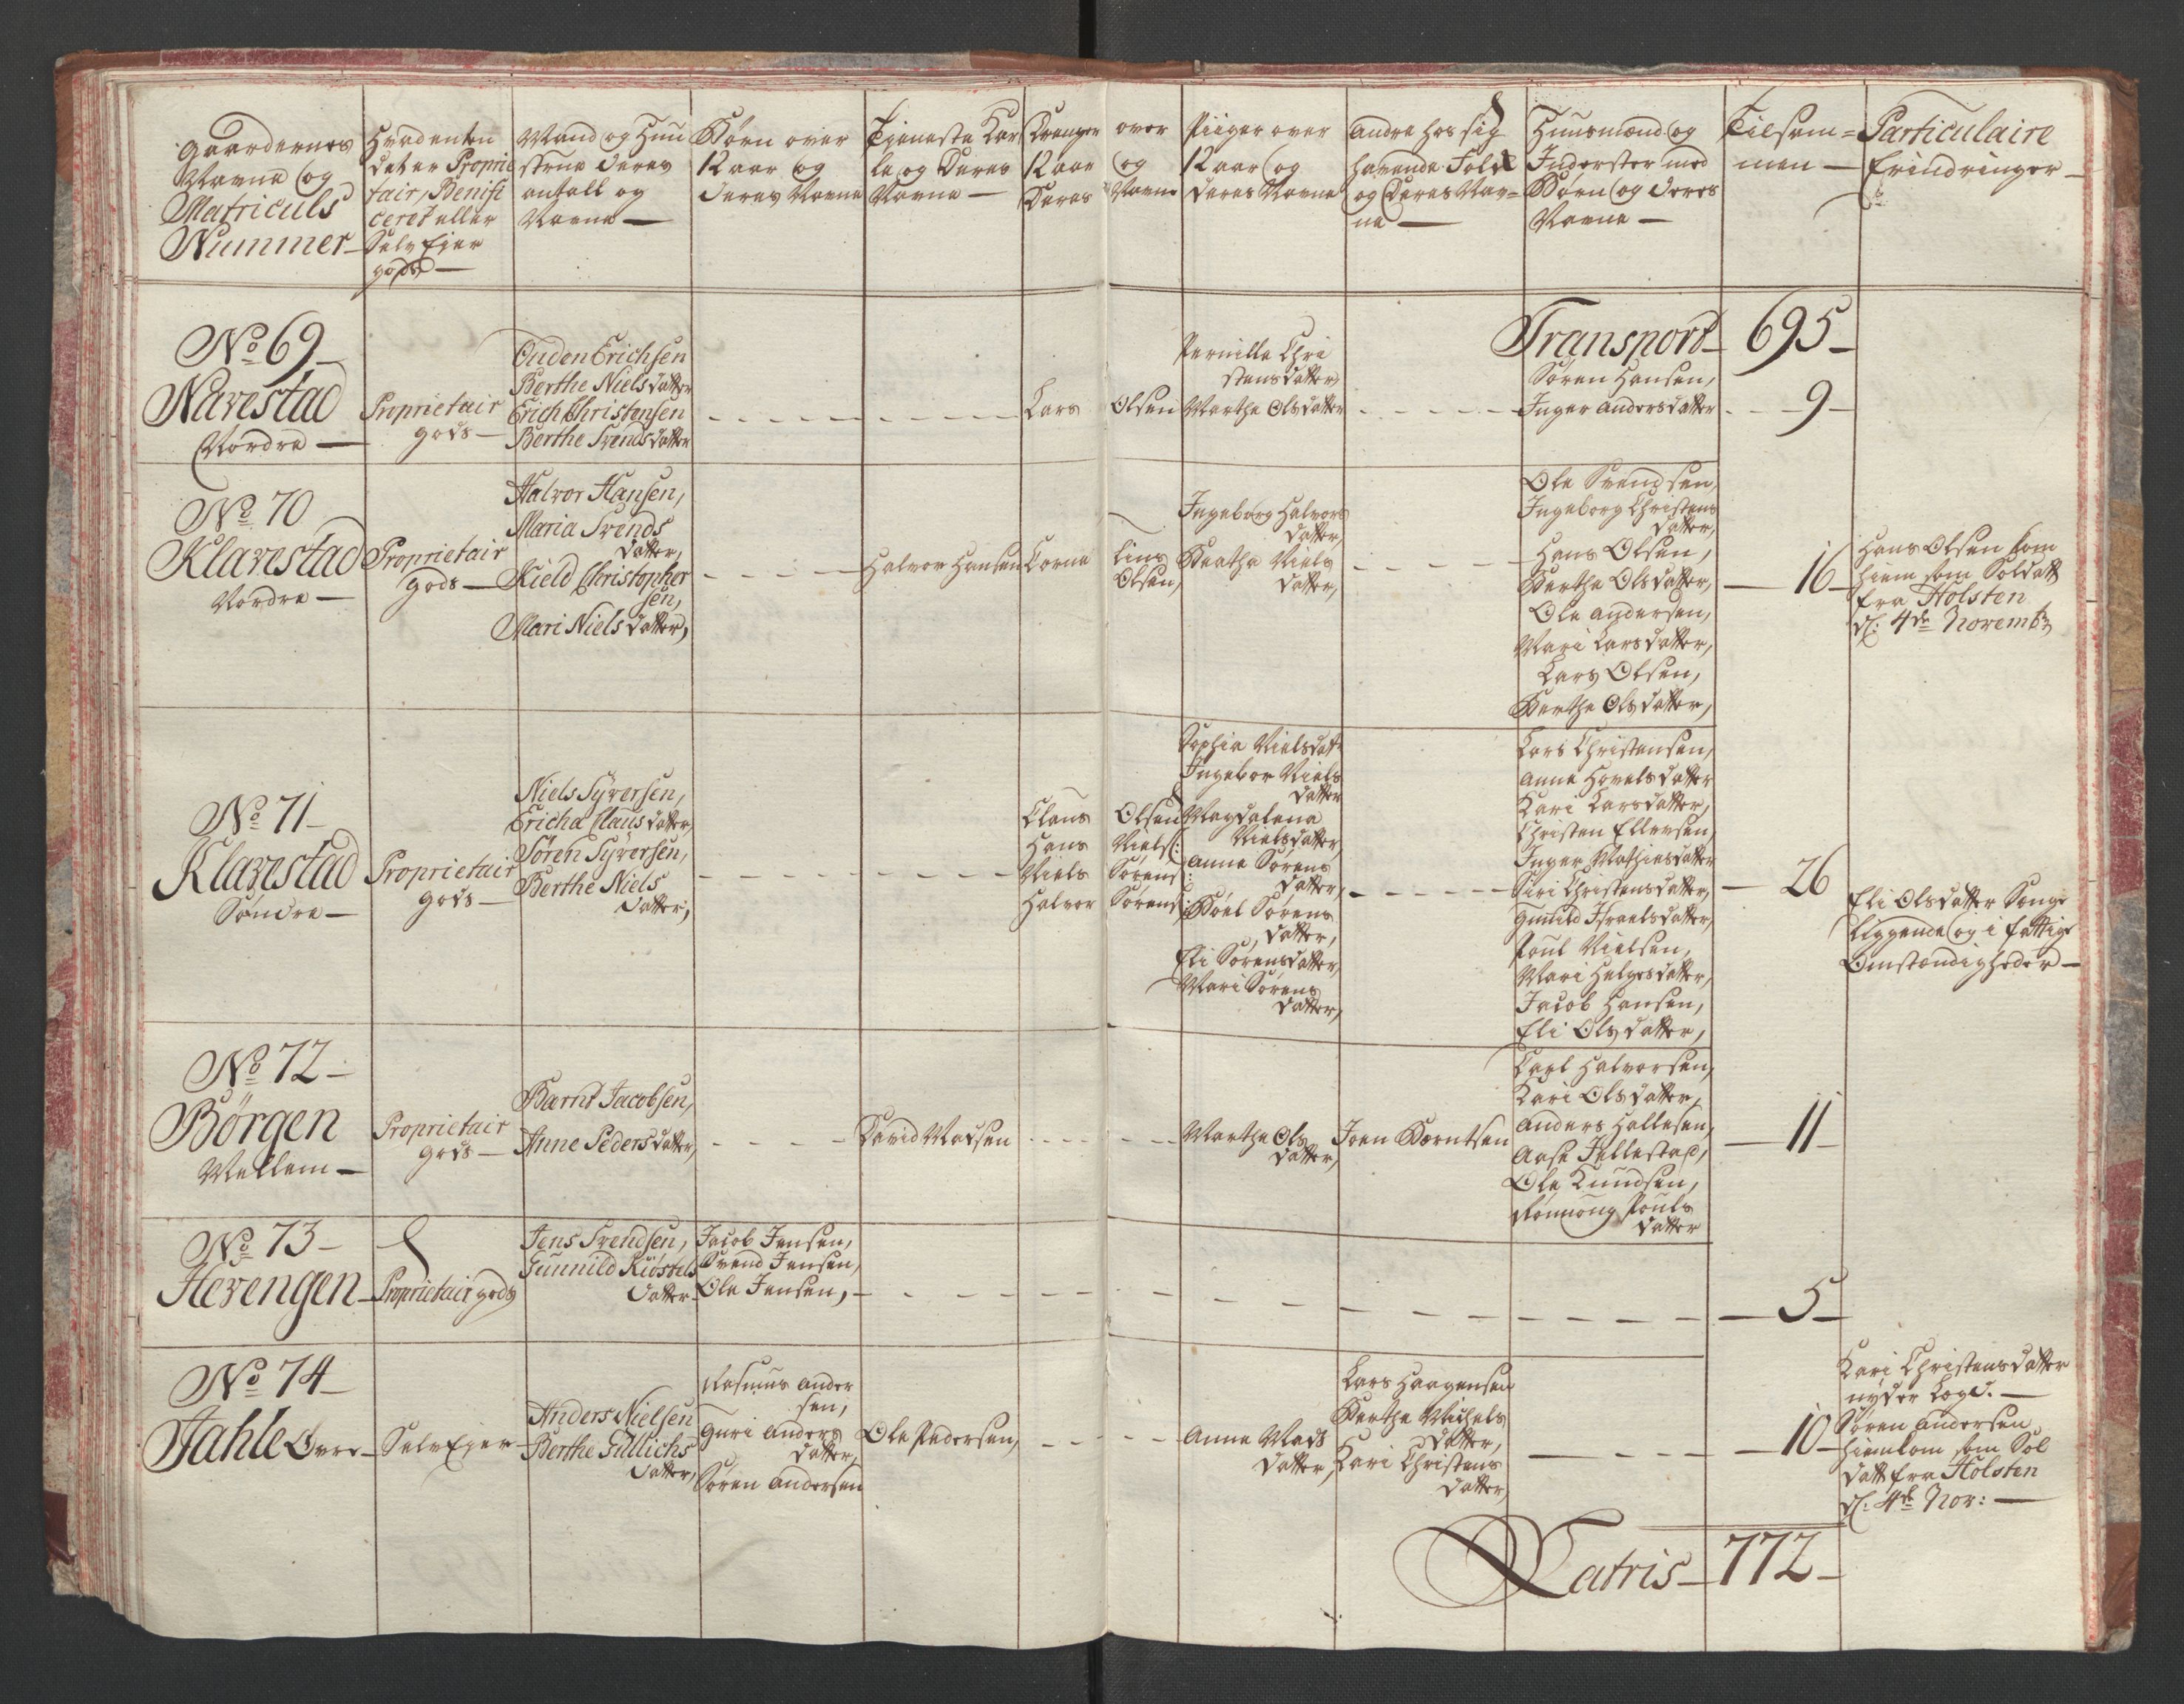 Gaardernes
Navne og
Matriculs
Nummer
Hvad enten
det er Proprie
tair, Benifi
ceret eller
Selv Ejer
gods
Mand og Huu
struer deres
antall og
Navne
Børn over
12 aar og
deres Navne
Tjeneste Kar
le og deres
Navne
Drenger over
12 aar og
deres Navne
Piiger over
12 aar og
deres Navne
Andre hos sig
havende Folk
og deres Nav=
ne
Huusmænd og
Inderster med
Børn og deres
Navne
Tilsam=
men
Particulaire
Erindringer
Transport 695
No 69
Navestad
Nordre
Proprietair
gods
Ouden Erichsen
Berthe Nielsdatter
Erich Christensen
Berthe Svendsdatter
Lars Olsen
Pernille Chri
stensdatter
Marthe Olsdatter
Søren Hansen,
Inger Andersdatter
9
No 70
Klavestad
Nordre
Proprietair
gods
Halvor Hansen,
Maria Svends
datter,
Kield Christopher
sen,
Mari Nielsdatter,
Halvor Hansen
Olsen,
Ingeborg Halvors
datter,
Berthe Niels
datter,
Ole Svendsen,
Ingeborg Christens
datter,
Hans Olsen,
Berthe Olsdatter,
Ole Andersen,
Mari Larsdatter,
Lars Olsen,
Berthe Olsdatter,
16
Hans Olsen kom
hiem som Soldatt
fra Holsten
d: 4de Novembr
No 71
Klavestad
Søndre
Proprietair
gods
Niels Syversen,
Ericha Clausdatter,
Søren Syversen,
Berthe Niels
datter,
Claus Olsen
Hans Niels:
Niels Sørens:
Halvor Sørens:
Sophia Nielsdatt:
Ingebor Niels
datter
Magdalena
Nielsdatter,
Anne Sørens
datter,
Boel Sørens
datter,
Eli Sørensdatter,
Mari Sørens
datter,
Lars Christensen,
Anne Hovelsdatter
Kari Larsdatter,
Christen Ellevsen,
Inger Mathiesdatter
Siri Christensdatter,
Gunild Israelsdatter,
Poul Nielsen,
Mari Helgesdatter,
Jacob Hansen,
Eli Olsdatter,
26
Eli Olsdatter Senge
liggende og i fattige
Omstændigheder
No 72
Börgen
Mellem
Proprietair
gods
Bærnt Jacobsen,
Anne Pedersdatter,
David Madsen
Marthe Ols
datter,
Joen Bærntsen
Carl Halvorsen,
Kari Olsdatter,
Anders Hallesen,
Aase Jellestad,
Ole Knudsen,
Rönnoug Pouls
datter
11
No 73
Hevengen
Proprietair gods
Jens Svendsen,
Gunnild Kiöstels
datter
Jacob Jensen,
Svend Jensen,
Ole Jensen,
5
No 74
Jahle Övre
Selv Ejer
Anders Nielsen
Berthe Gullichs
datter,
Rasmus Ander
sen,
Guri Anders
datter,
Søren Andersen
Ole Pedersen,
Anne Mads
datter,
Lars Haagensen
Berthe Michels
datter,
Kari Christens
datter,
10
Kari Christensdatter
nyder Lægd.
Søren Andersen
hiemkom som Sol
datt fra Holsten
d: 4de Nov:
Latris 772